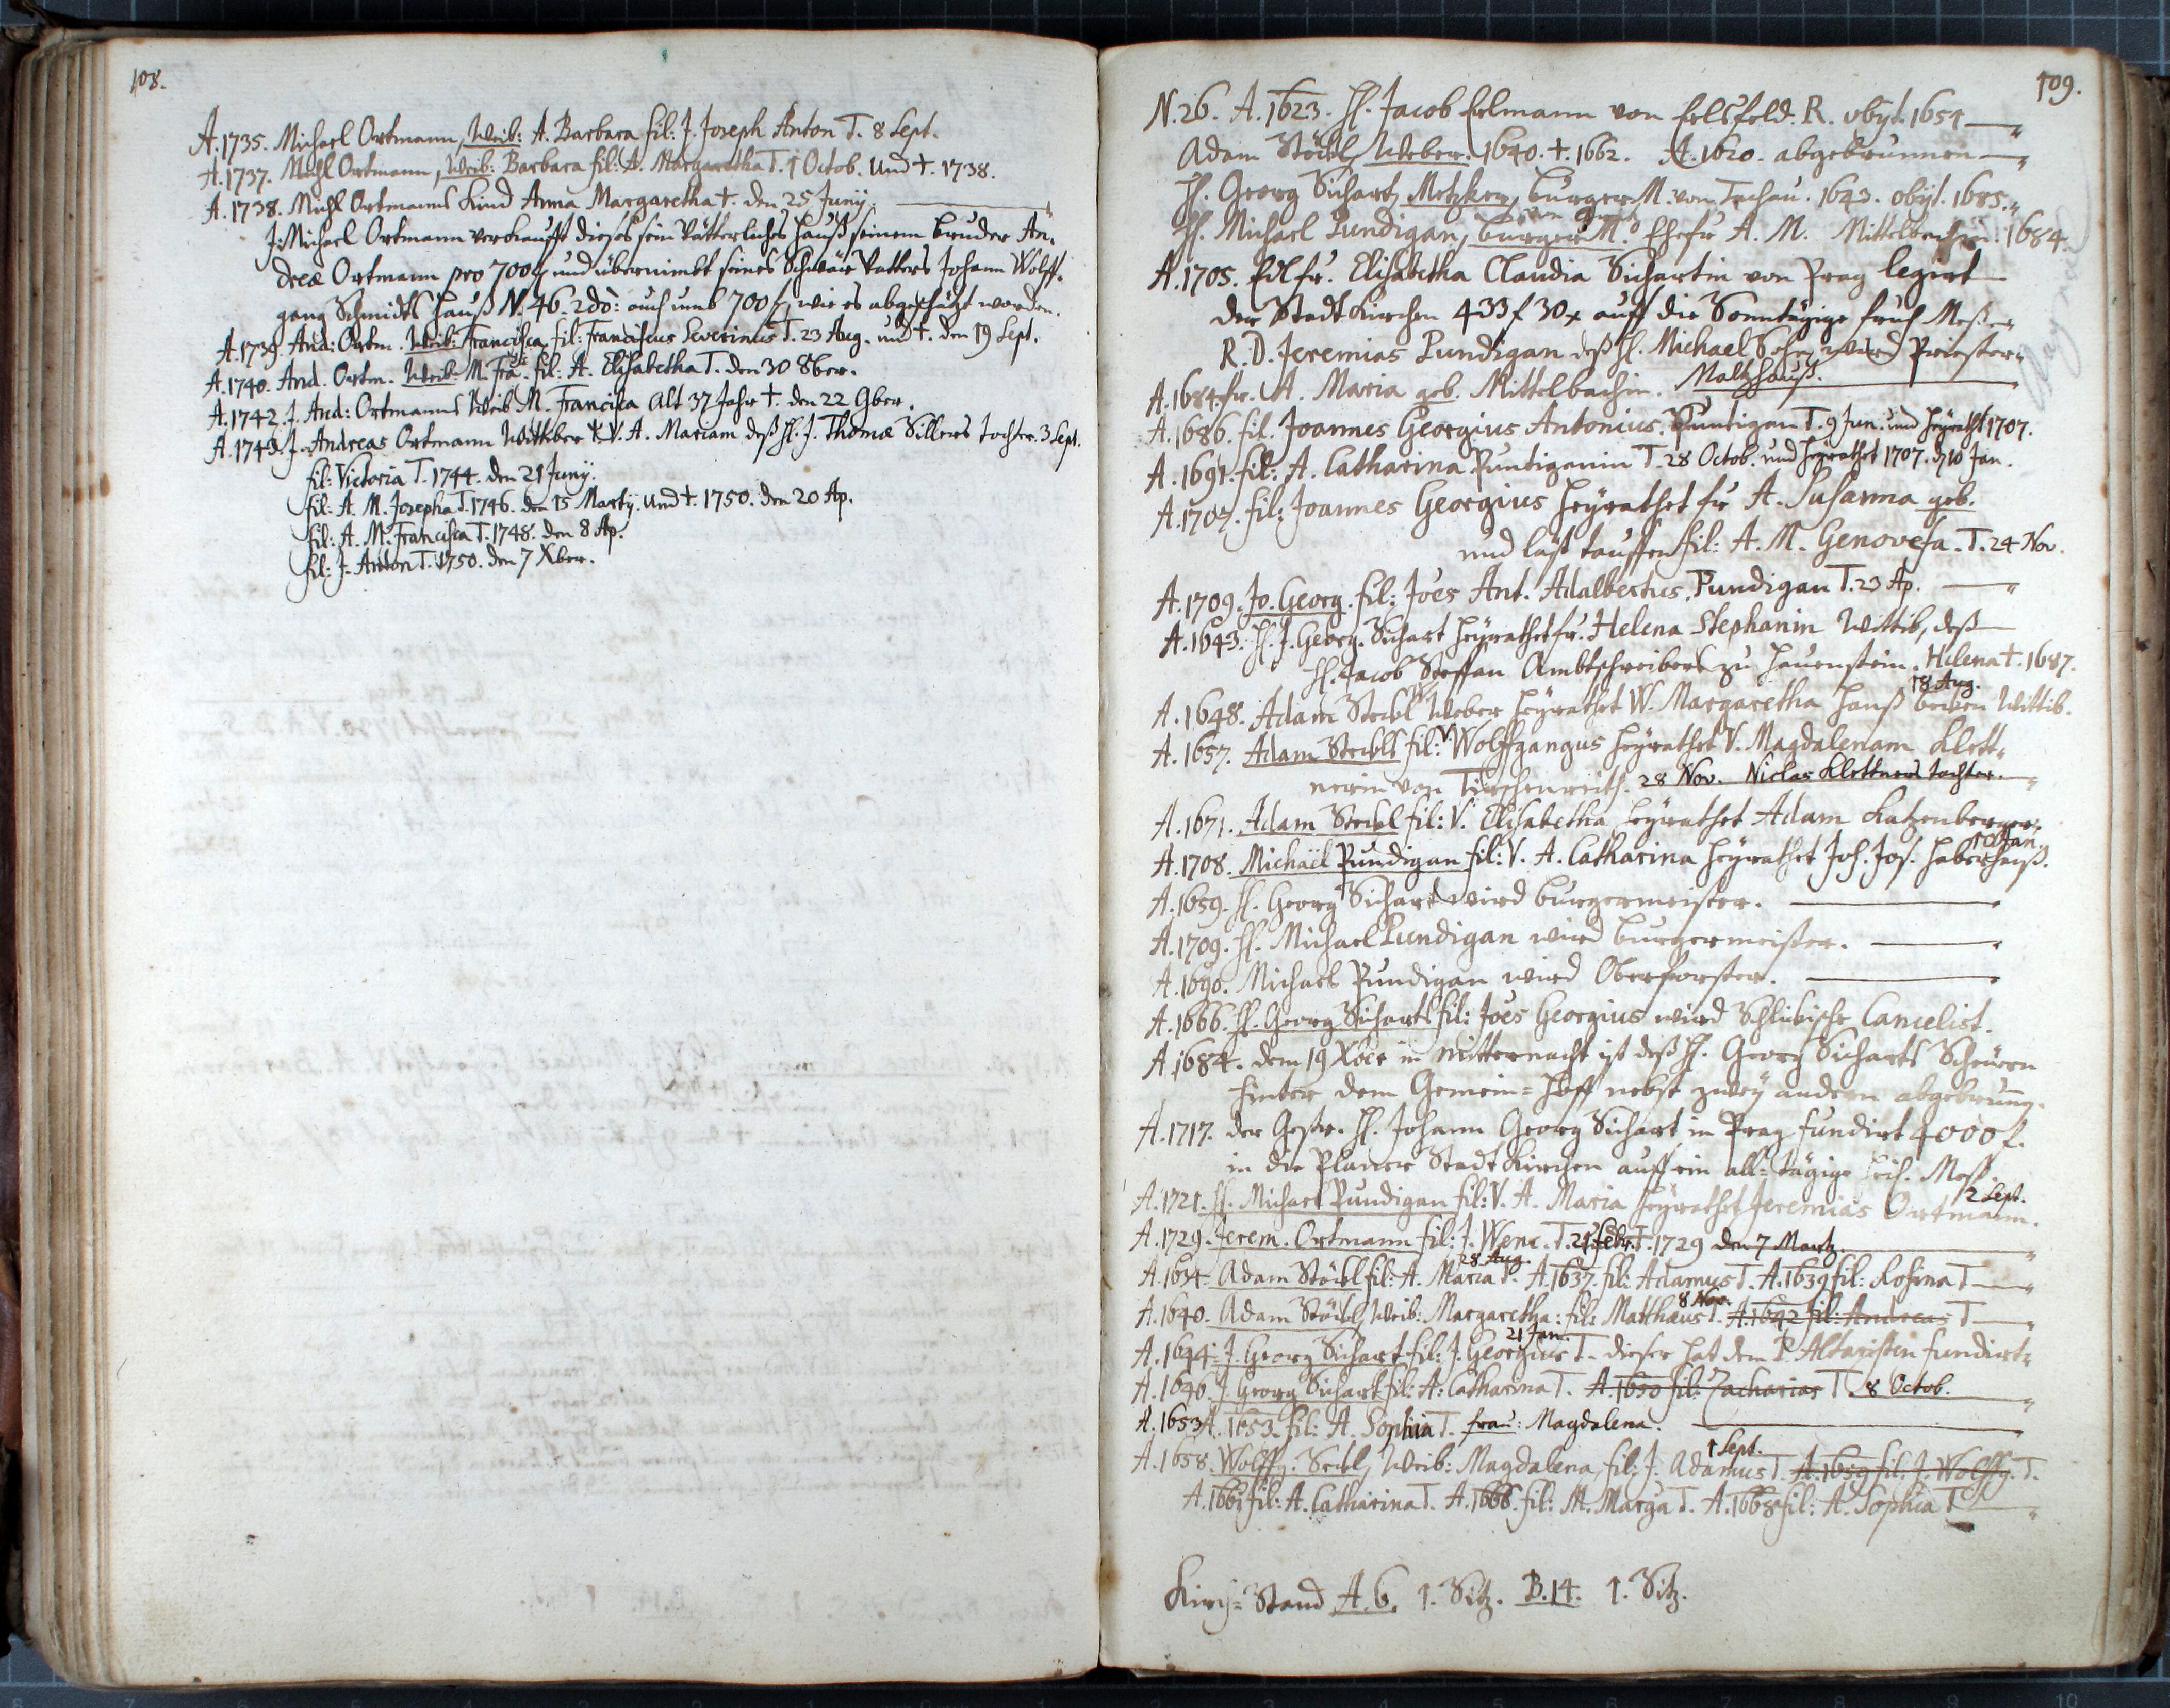 108.
A. 1735. Michael Ortmann, Weib: A. Barbara fil: J. Joseph Anton T. 8 Sept.
A. 1737. Michl Ortmann, Weib: Barbara fil: A. Margaretha T. 1 Octob. und †. 1738.
A. 1738. Michl Ortmanns Kind Anna Margaretha †. den 25 Junÿ.
J. Michael Ortmann verkaufft dieses sein Vätterliches Hauß seinem bruder An,
dreæ Ortmann pro 700 f und übernimbt seines Schwäer Vatters Johann Wolff,
gang Schmidts Hauß N. 46. 2do: auch umb 700 f, wie es abgeschäzt worden.
A. 1739. And: Ortm. Weib: Francisca, fil: Franciscus Severinus T. 23 Aug. und †. den 19 Sept.
A. 1740. And. Ortm. Weib: M. Fra: fil: A. Elisabetha T. den 30 8ber.
A. 1742. J. And: Ortmanns Weib M. Francisca alt 37 Jahr †. den 22 9ber.
A. 1743. J. Andreas Ortmann Wittiber V. A. Mariam deß H. J. Thomæ Sillers Tochter. 3 Sept.
fil: Victoria T. 1744. den 21 Junÿ.
fil: A. M. Josepha T. 1746. den 15 Martÿ. und †. 1750. den 20 Ap.
fil: A. M. Francisca T. 1748. den 8 Ap.
fil: J. Anton T. 1750. den 7 Xber.
109.
N. 26. A. 1623. H. Jacob Eelmann von Eelsfeld. R. obyt. 1654
Adam Stöckl, Weber. 1640. †. 1662. A. 1620. abgebrunnen
H. Georg Sichart, Metzker, burger M. von Tachau. 1643. obyt. 1685.
H. Michael Pundigan, burger M. Ehefr A. M. Mittelbachin. 1684.
A. 1705. Edlfr. Elisabetha Claudia Sichartin von Prag legirt
der Stadt Kirchen 433 f 30 x auff die Sonntägige fruh Meßer
R. D. Jeremias Pundigan deß H. Michael Sohn, wird Priester,
A. 1684. fr. A. Maria geb. Mittelbachin. Maltzhauß.
A. 1686. fil. Joannes Georgius Antonius. Puntigan T. 9 Jun. und heÿrath 1707.
A. 1691. fil: A. Catharina Puntiganin T. 28 Octob. und heÿrathet 1707. d 10 Jan.
A. 1707. fil: Joannes Georgius heÿrathet fr A. Susanna geb.
und läst tauffen fil: A. M. Genovefa. T. 24 Nov.
A. 1709. Jo. Georg. fil: Joes Ant. Adalbertus. Pundigan T. 23 Ap.
A. 1643. H. J. Georg. Sichart heÿrathet fr. Helena Stephanin Wittib, deß
H. Jacob Steffan Ambtschreibers zu Hauenstein. Helena †. 1687.
18 Aug.
A. 1648. Adam Steckl Weber heÿrathet W. Margaretha Hanß Wittib.
A. 1657. Adam Steckls fil: Wolffgangus heÿrathet V. Magdalenam Klett,
nerin von Tirschenreith. 28 Nov. Niclas Klettners tochter.
A. 1671. Adam Steckel fil: V. Elisabetha heÿrathet Adam Katzenberger.
10 Jan.
A. 1708. Michaël Pundigan fil: V. A. Catharina heÿrathet Joh. Jos. Haberhauß.
A. 1659. H. Georg Sichart wird burgermeister.
A. 1709. H. Michael Pundigan wird burgermeister.
A. 1690. Michael Pundigan wird Oberforster.
A. 1666. H. Georg Sicharts fil: Joes Georgius wird Schlikische Cancelist.
A. 1684. dem 19 Xber in mitternacht ist deß H. Georg Sicharts Scheuern
hinter dem Gemein-Hoff nebst zweÿ andern abgebrunn.
A. 1717. der Gestr. H. Johann Georg Sichart in Prag fundirt 4000 f.
in die Planer Stadt Kirchen auff ein all-tägige Meß.
2 Sept.
A. 1721. H. Michael Pundigan fil: V. A. Maria heÿrathet Jeremias Ortmann.
A. 1729. Jerem. Ortmann fil: J. Wenc. T. 21 Febr. †. 1729 den 7 Martz.
28 Aug.
A. 1634. Adam Stöckl fil: A. Maria T. A. 1637. fil: Adamus T. A. 1639 fil: Rosina T
8 Nov.
A. 1640. Adam Stöckl, Weib: Margaretha: fil: Matthæus T. A. 1642 fil: Andreas T
21 Jan.
A. 1644. J. Georg Sichart fil: J. Georgius T. dieser hat dem P. Altaristen fundirt
A. 1646. J. Georg Sichart fil: A. Catharina T. A. 1650 fil: Zacharias T. 8 Octob.
A. 1653 A. 1653. fil: A. Sophia T. frau: Magdalena.
1 Sept.
A. 1658. Wolffg. Seckl, Weib: Magdalena, fil: J. Adamus T. A. 1659 fil: J. Wolffg. T.
A. 1661 fil: A. Catharina T. A. 1666. fil: M. Marga T. A. 1668 fil: A. Sophia T
Kirch-Stand A. 6. 1. Sitz. B. 14. 1. Sitz.